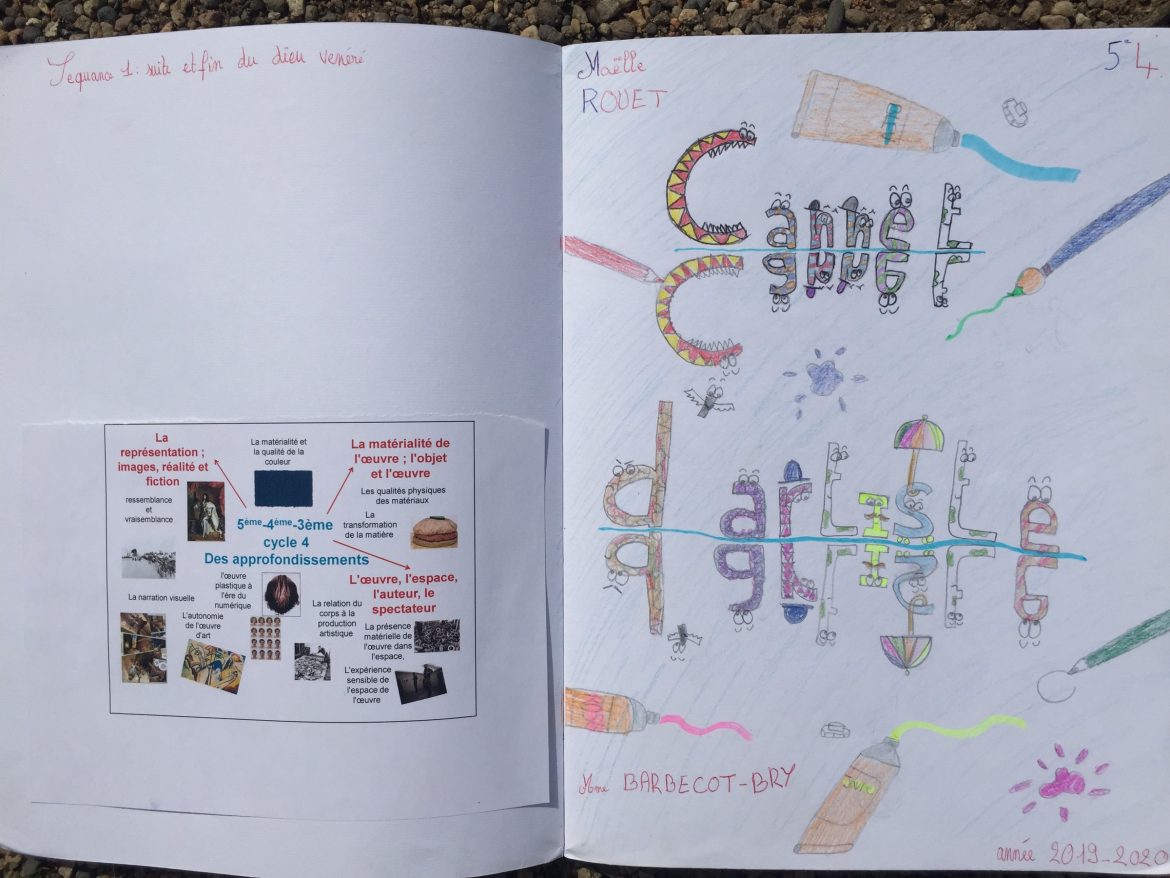 Sequance 1: suite et fin du dieu vénéré
La
représentation ;
images, réalité et
fiction
La matérialité et
la qualité de la
couleur
La matérialité de
l'œuvre ; l'objet
et l'œuvre
ressemblance
et
vraisemblance
Les qualités physiques
des matériaux
La
transformation
de la matière
5ème-4ème-3ème
cycle 4
Des approfondissements
L'œuvre, l'espace,
l'auteur, le
spectateur
l'œuvre
plastique à
l'ère du
numérique
La narration visuelle
L'autonomie
de l'œuvre
d'art
La relation du
corps à la
production
artistique
La présence
matérielle de
l'œuvre dans
l'espace,
L'expérience
sensible de
l'espace de
l'œuvre
Maëlle
ROUET
5e4
Cannet
d'artiste
Mme BARBECOT-BRY
année 2019-2020